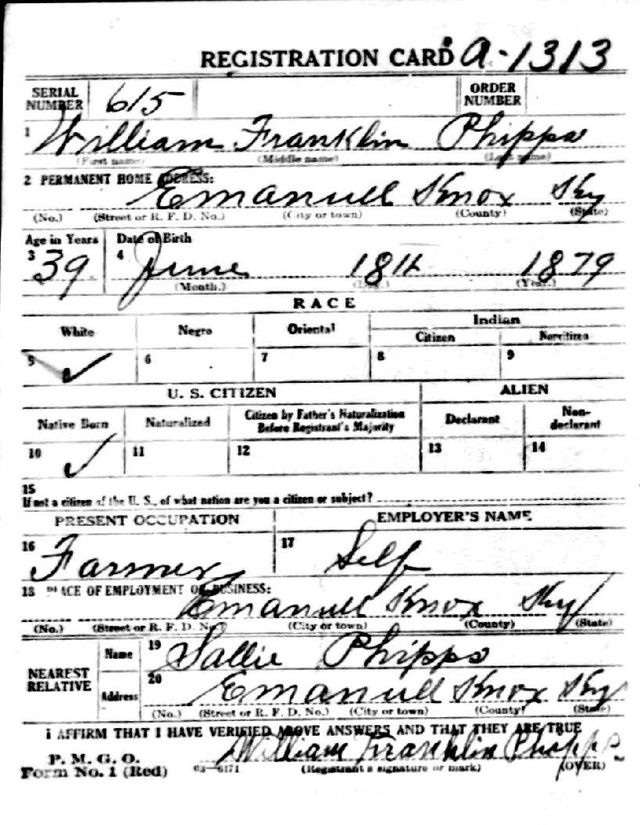 REGISTRATION CARD A-1313
SERIAL NUMBER 615 ORDER NUMBER
1 William Franklin Phipps
(First name) (Middle name) (Last name)
2 PERMANENT HOME ADDRESS: Emanuell Knox Ky
(No.) (Street or R. F. D. No.) (City or town) (County) (State)
Age in Years Date of Birth
3 39 4 June 18th 1879
(Month.) (Day.) (Year.)
RACE
White Negro Oriental Indian
Citizen Noncitizen
5 6 7 8 9
U. S. CITIZEN ALIEN
Native Born Naturalized Citizen by Father's Naturalization Before Registrant's Majority Declarant Non-declarant
10 11 12 13 14
15
If not a citizen of the U. S., of what nation are you a citizen or subject?
PRESENT OCCUPATION EMPLOYER'S NAME
16 Farmer 17 Self
18 PLACE OF EMPLOYMENT OR BUSINESS:
Emanuell Knox Ky
(No.) (Street or R. F. D. No.) (City or town) (County) (State)
NEAREST RELATIVE Name 19 Sallie Phipps
Address 20 Emanuell Knox Ky
(No.) (Street or R. F. D. No.) (City or town) (County) (State)
I AFFIRM THAT I HAVE VERIFIED ABOVE ANSWERS AND THAT THEY ARE TRUE
P. M. G. O.
Form No. 1 (Red) 03—6171 William Franklin Phipps
(Registrant's signature or mark) (OVER)